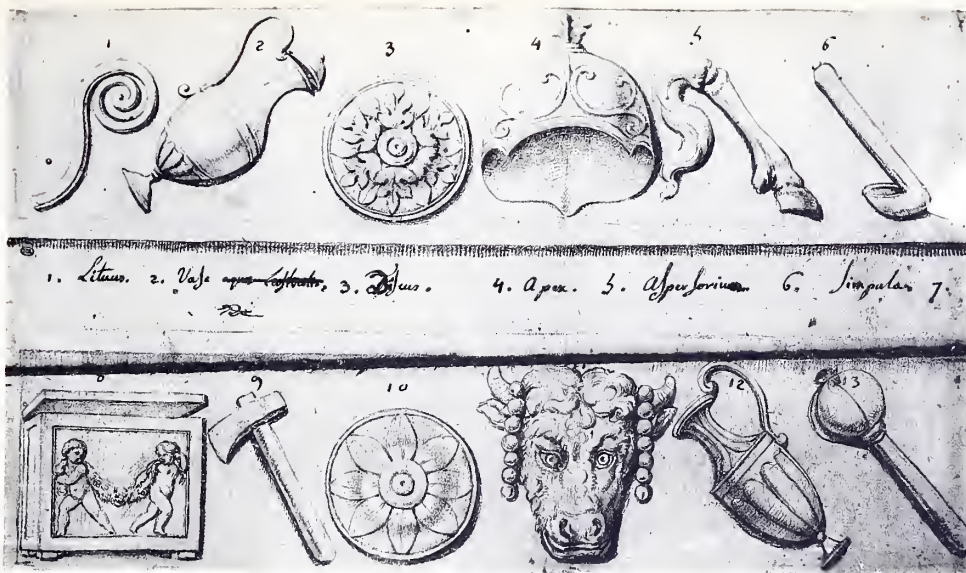 1 2 3 4 5 6
1. Lituus. 2. Vase aqua lustralis. 3. Discus. 4. Apex. 5. Aspersorium. 6. Simpula 7.
8 9 10 12 13